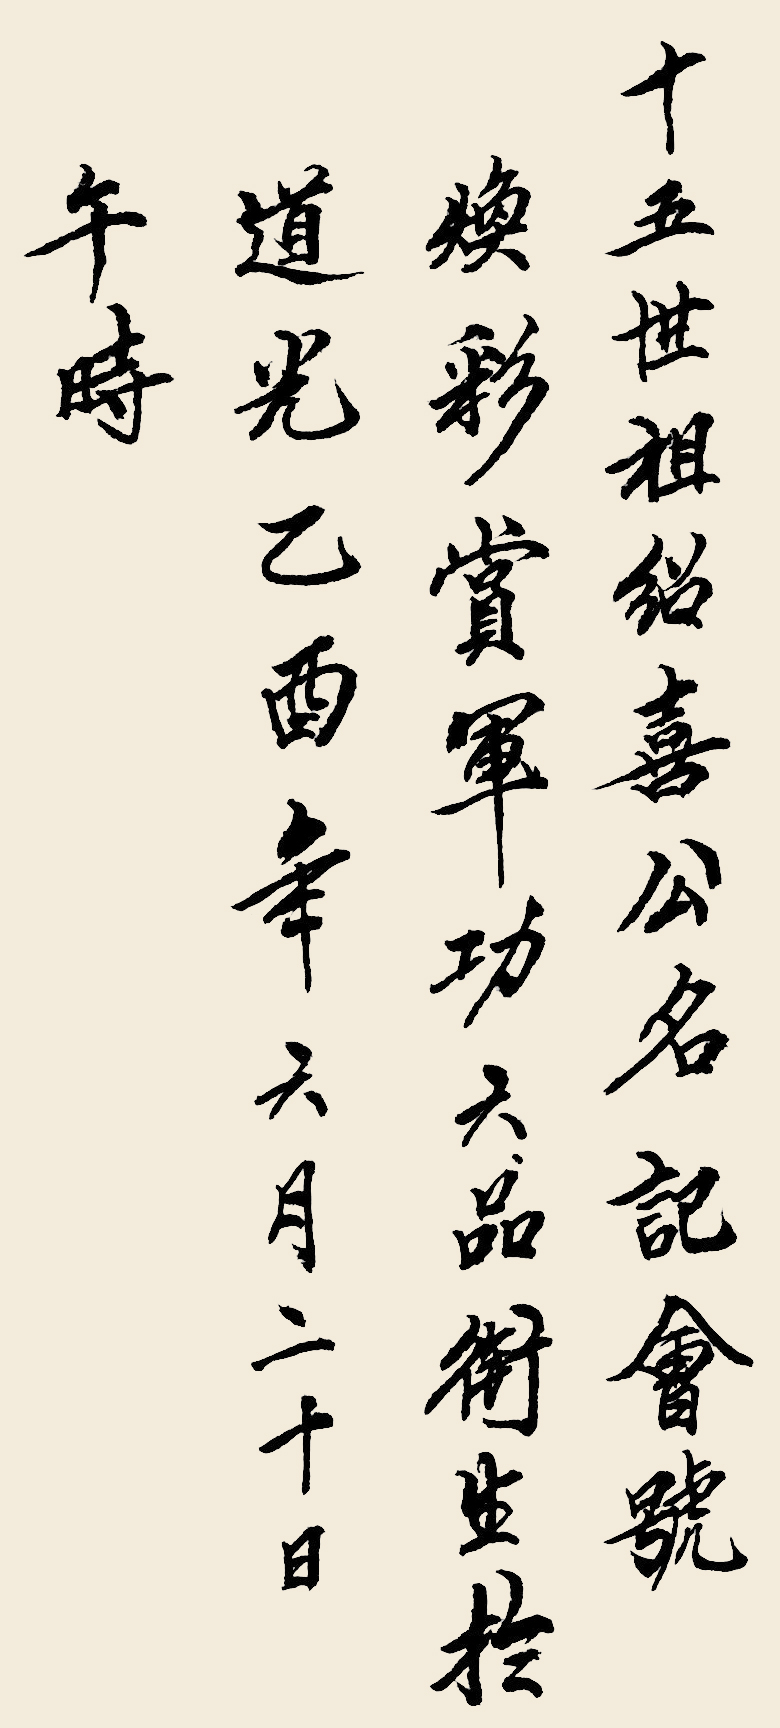 十五世祖紹喜公名記會號
煥彩賞軍功六品銜生於
道光乙酉年六月二十日
午時